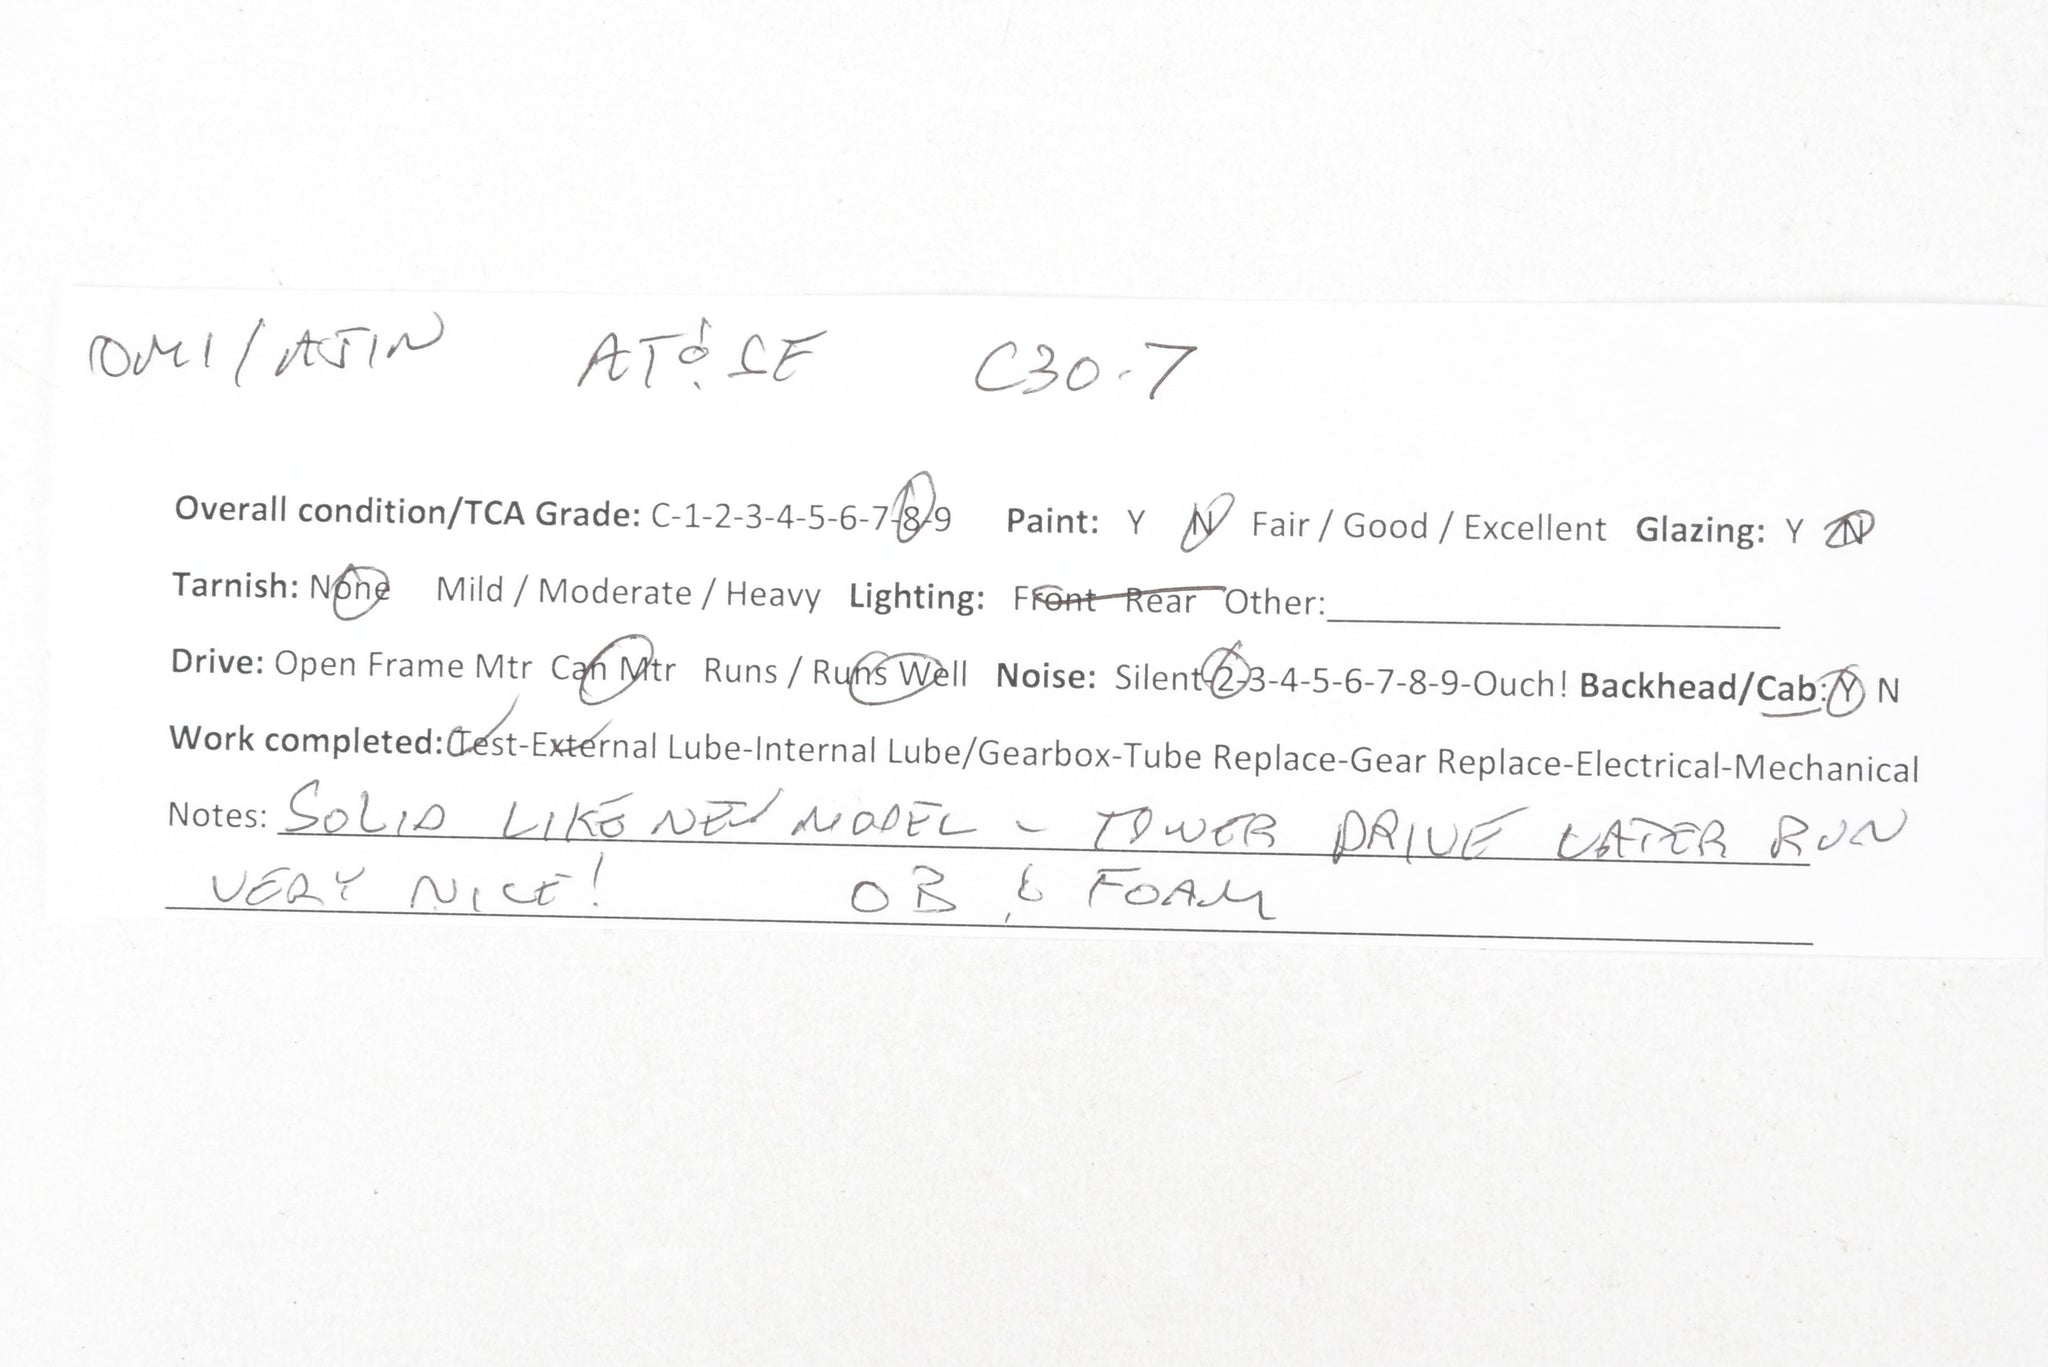 OMI/AJIN AT&SF C30-7
Overall condition/TCA Grade: C-1-2-3-4-5-6-7-8-9 Paint: Y N Fair / Good / Excellent Glazing: Y N
Tarnish: None Mild / Moderate / Heavy Lighting: Front Rear Other:
Drive: Open Frame Mtr Can Mtr Runs / Runs Well Noise: Silent-2-3-4-5-6-7-8-9-Ouch! Backhead/Cab: Y N
Work completed: Test-External Lube-Internal Lube/Gearbox-Tube Replace-Gear Replace-Electrical-Mechanical
Notes: SOLID LIKE NEW MODEL - TOWER DRIVE LATER RUN
VERY NICE! OB & FOAM